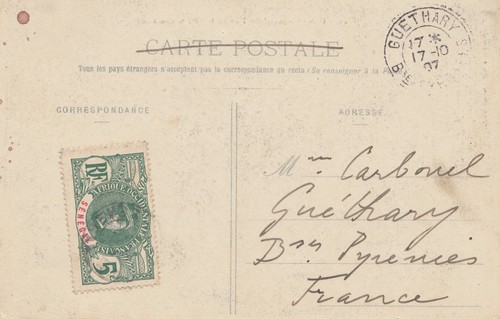 CARTE POSTALE
Tous les pays étrangers n'acceptent pas la correspondance au recto (Se renseigner à la
CORRESPONDANCE
ADRESSE
GUÉTHARY
17 *
17-10
07
RF
AFRIQUE OCCIDENTALE FRANÇAISE
SENEGAL
5
Mme Carbonel
Guéthary
Bses Pyrénées
France